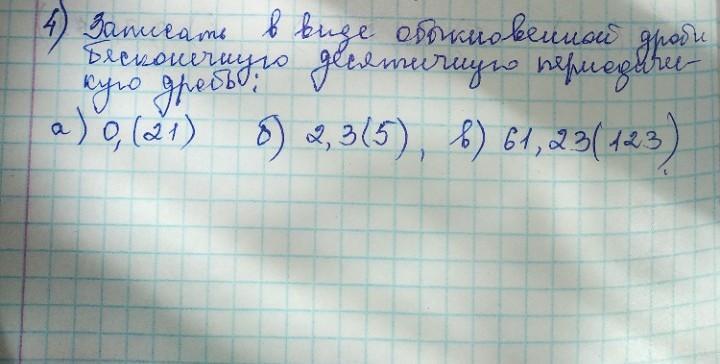 4) Записать в виде обыкновенной дроби
бесконечную десятичную периодичес-
кую дробь:
а) 0,(21) б) 2,3(5), в) 61,23(123)